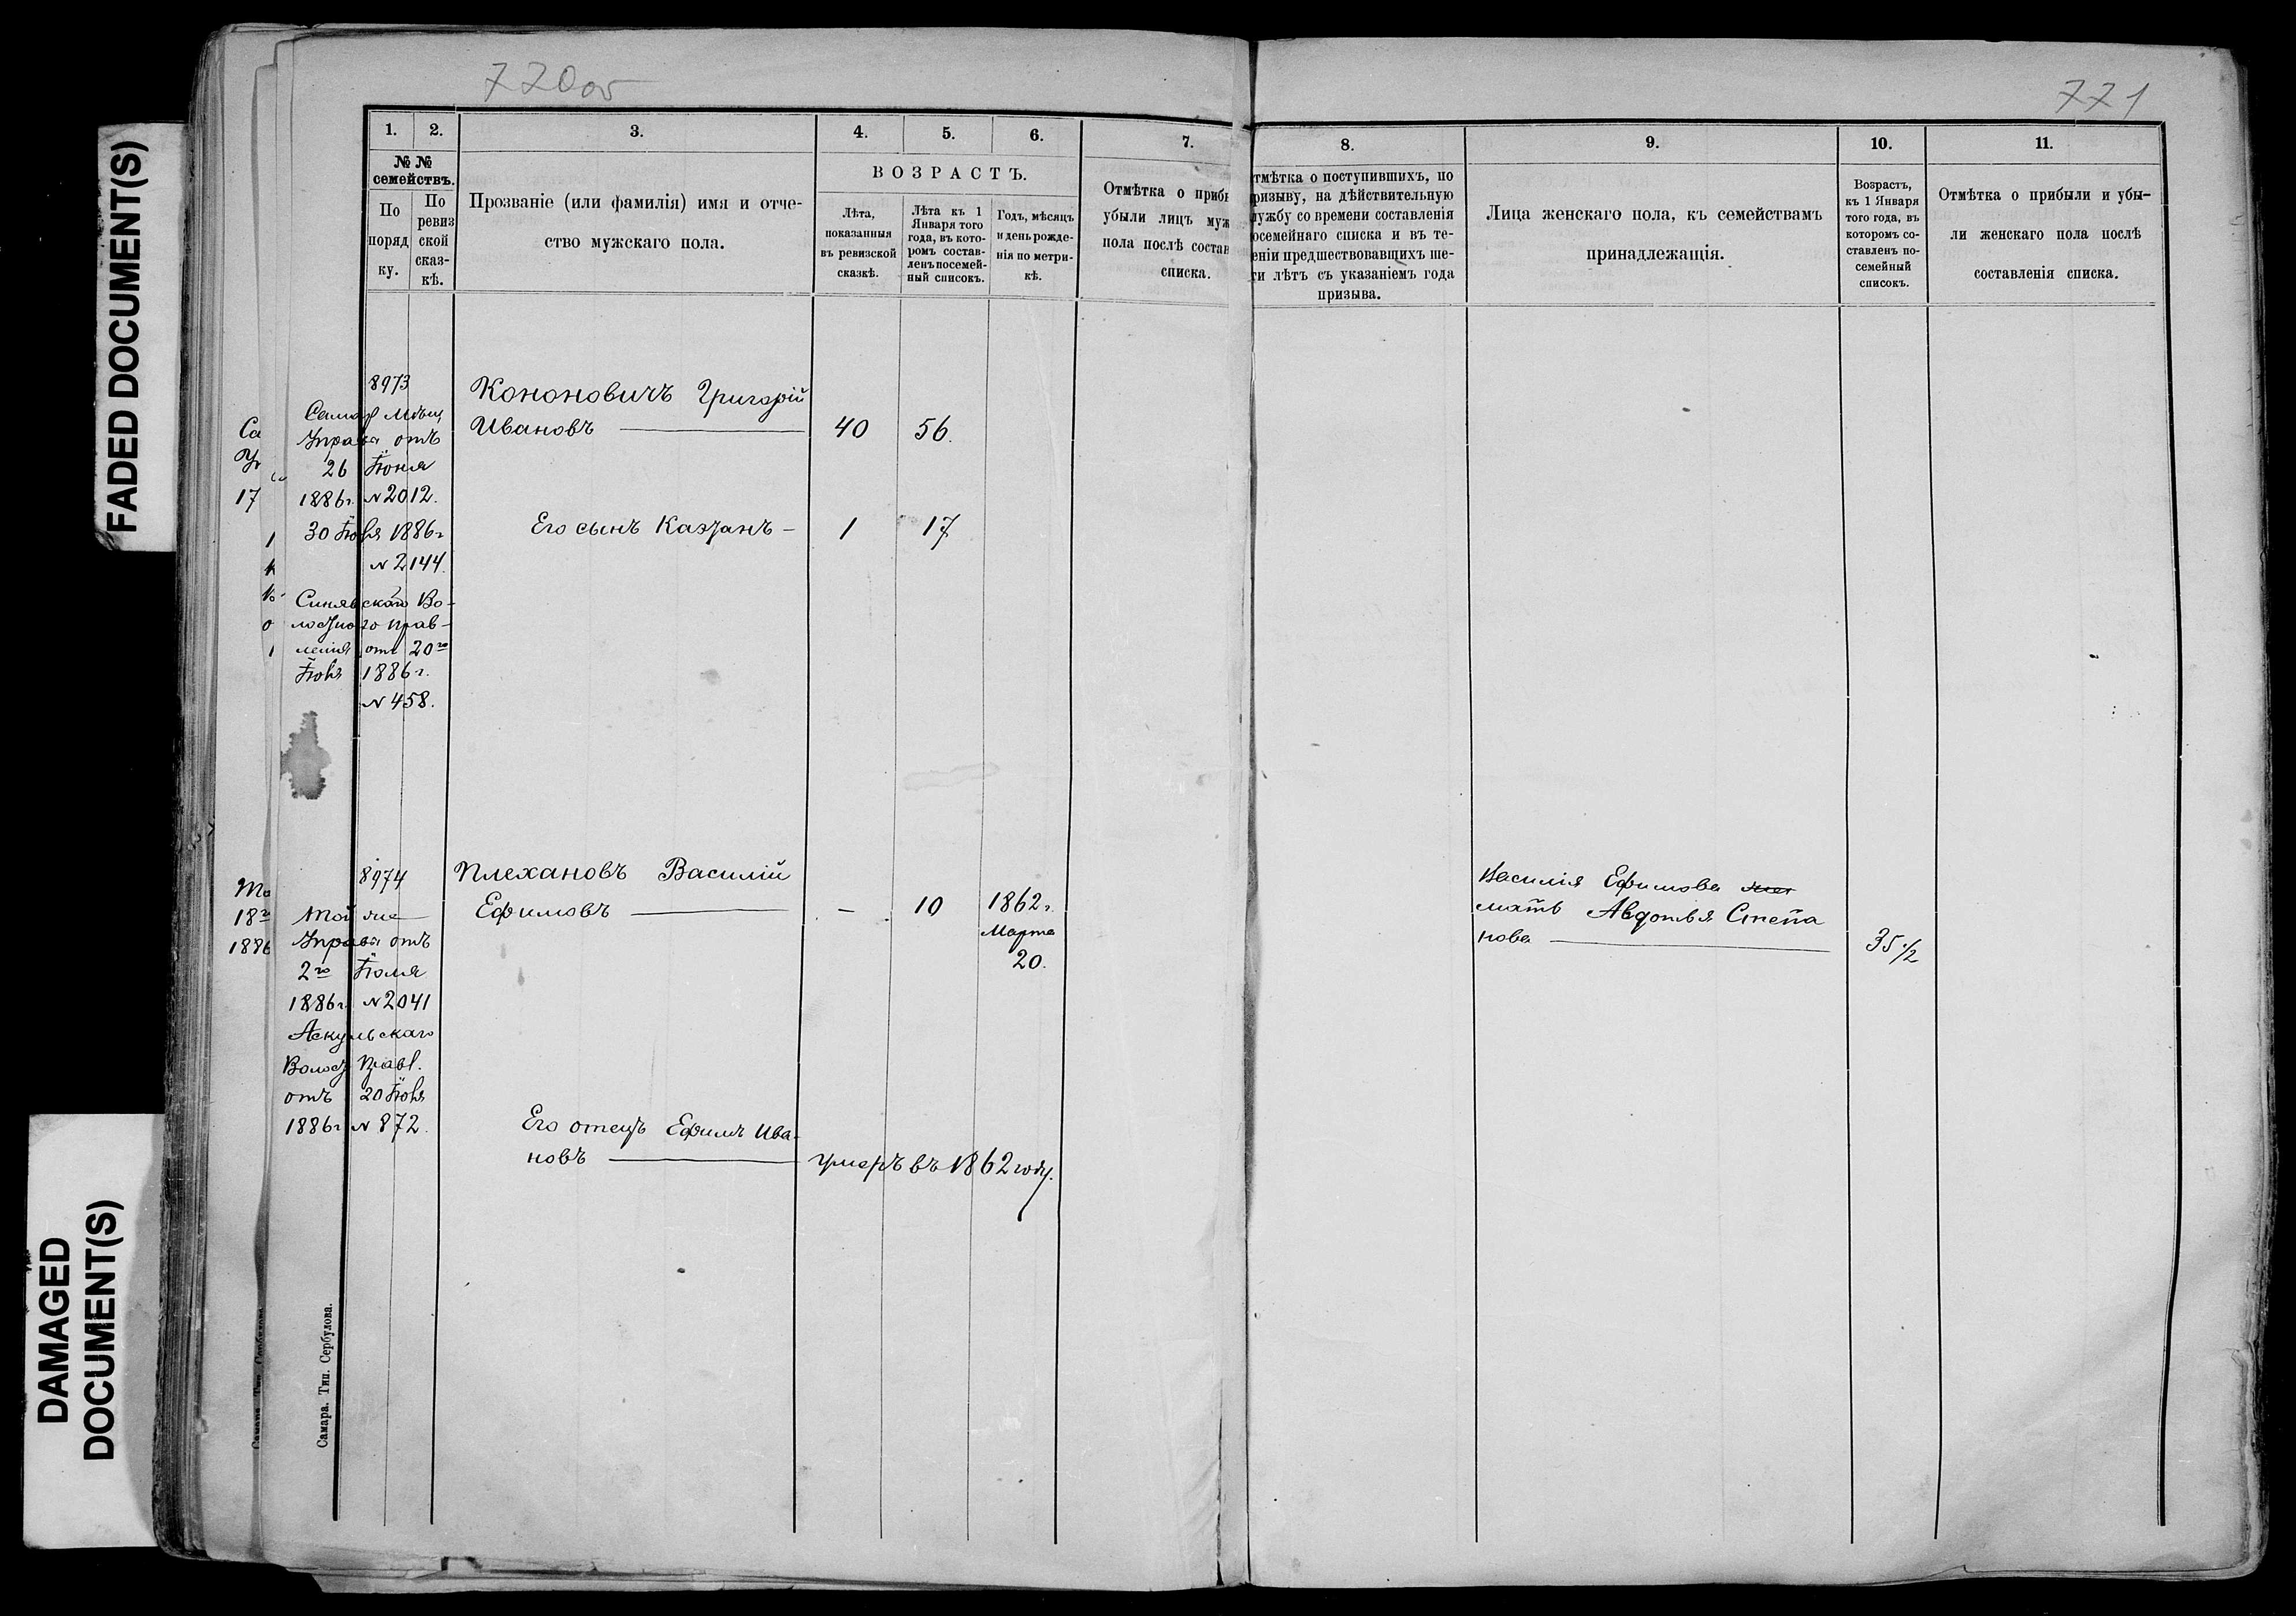 FADED DOCUMENT(S)
DAMAGED
DOCUMENT(S)
770об
771
1.
2.
3.
4.
5.
6.
7.
8.
9.
10.
11.
№ №
семействъ.
По
поряд
ку.
По
ревиз
ской
сказ-
кѣ.
Прозваніе (или фамилія) имя и отче-
ство мужскаго пола.
ВОЗРАСТЪ.
Лѣта,
показанныя
въ ревизской
сказкѣ.
Лѣта къ 1
Января того
года, въ кото-
ромъ состав-
ленъ посемей-
ный списокъ.
Годъ, мѣсяцъ
и день рожде-
нія по метри-
кѣ.
Отмѣтка о приб
убыли лицъ муж
пола послѣ состав
списка.
тмѣтка о поступившихъ, по
ризыву, на дѣйствительную
ужбу со времени составленія
осемейнаго списка и въ те-
еніи предшествовавшихъ ше-
ти лѣтъ съ указаніемъ года
призыва.
Лица женскаго пола, къ семействамъ
принадлежащія.
Возрастъ,
къ 1 Января
того года, въ
которомъ со-
ставленъ по-
семейный
списокъ.
Отмѣтка о прибыли и убы-
ли женскаго пола послѣ
составленія списка.
8973
Самар Мѣщ
Управа отъ
26 Іюня
1886г. №2012.
30 Іюня 1886г
№2144.
Синявскаго Во-
лостного прав-
ленія отъ 20го
Іюня 1886г.
№458.
Кононовичъ Григорій
Ивановъ — 40 56.
Его сынъ Каэтанъ – 1 17
8974
Той же
Управы отъ
2го Іюля
1886г. №2041
Аскульскаго
Волост Правл.
отъ 20 Іюня
1886г №872.
Плехановъ Василій
Ефимовъ — – 10 1862г.
Марта
20.
Его отецъ Ефимъ Ива-
новъ — умеръ въ 1862 году.
Василія Ефимова
мать Авдотья Степа
нова — 35 1/2
Са
17
То
18
1886
Самара. Тип. Сербулова.